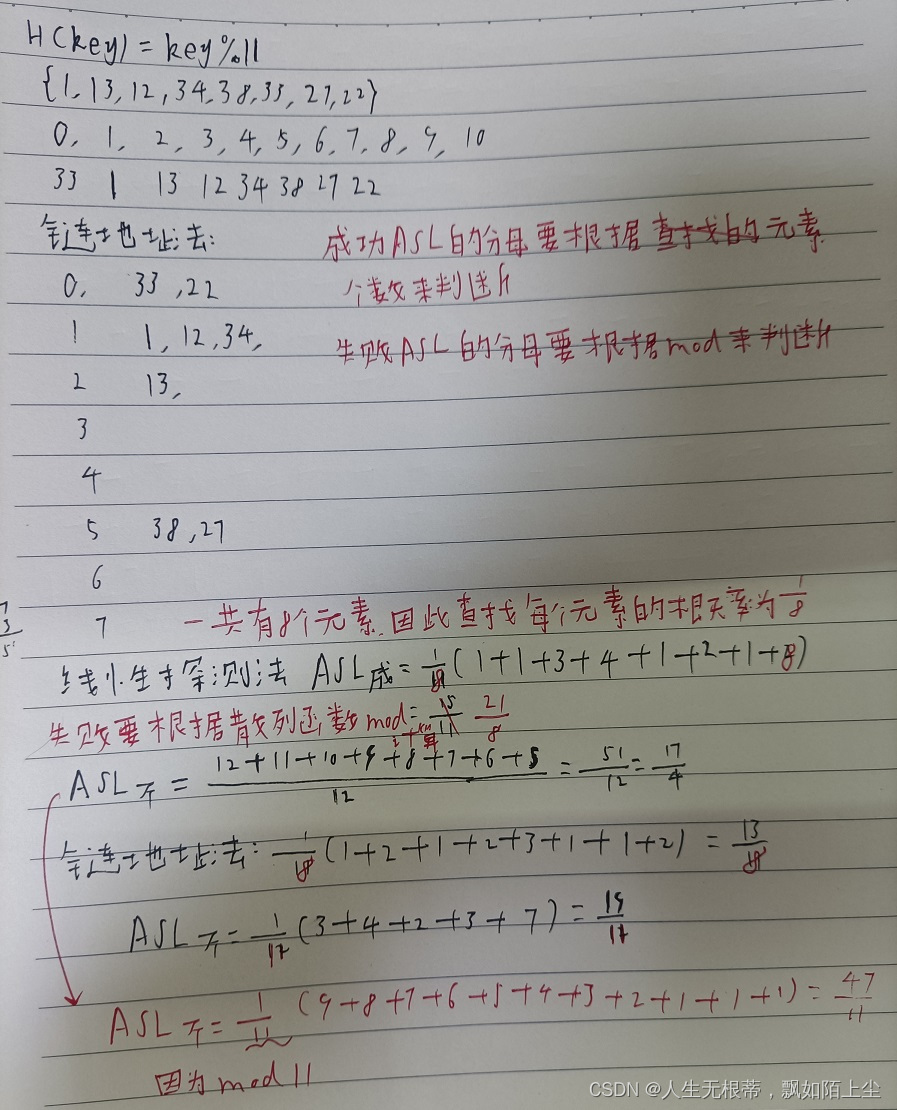 H(key) = key%11
{1, 13, 12, 34, 38, 33, 27, 22}
0, 1, 2, 3, 4, 5, 6, 7, 8, 9, 10
33 1 13 12 34 38 27 22
链地址法:
成功ASL的分母要根据查找的元素
个数来判断
0, 33, 22
1 1, 12, 34,
失败ASL的分母要根据mod来判断
2 13,
3
4
5 38, 27
6
7 一共有8个元素,因此查找每个元素的概率为1/8
线性探测法 ASL成 = 1/8(1+1+3+4+1+2+1+8)
失败要根据散列函数mod = 21/8
ASL不 = 12+11+10+9+8+7+6+5 / 12 = 51/12 = 17/4
链地址法: (1+2+1+2+3+1+1+2) = 13/8
ASL不 = (3+4+2+3+7) = 19
ASL不 = 1/11 (9+8+7+6+5+4+3+2+1+1+1) = 47/11
因为mod 11
CSDN @人生无根蒂,飘如陌上尘